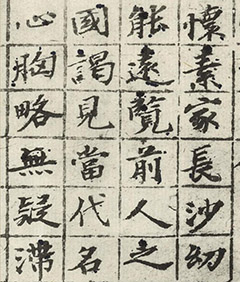 懷素家長沙幼
能遠覽前人之
國謁見當代名
心胸略無疑滯